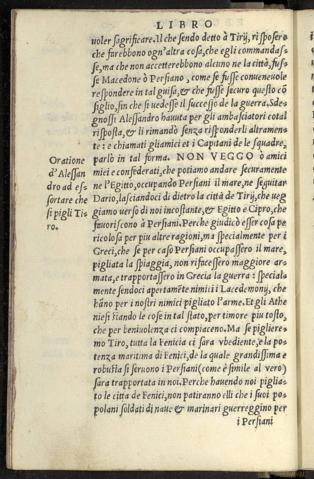 LIBRO
uoler sagrificare. Il che sendo detto à Tirij, risposero
che farebbono ogn'altra cosa, che egli commandas-
se, ma che non accetterebbono alcuno ne la città, fus-
se Macedone ò Persiano, come se fusse conueneuole
respondere in tal guisa, & che fusse securo questo cõ
siglio, fin che si uedesse il successo de la guerra. Sde-
gnossi Alessandro hauuta per gli ambasciatori cotal
risposta, & li rimandò senza risponderli altramen-
te: e chiamati gliamici et i Capitani de le squadre,
parlò in tal forma. NON VEGGO ò amici
Oratione
d'Alessan
dro ad es
sortare che
si pigli Ti
ro.
miei e confederati, che potiamo andare securamente
ne l'Egitto, occupando Persiani il mare, ne seguitar
Dario, lasciandoci di dietro la città de Tirij, che ueg
giamo uerso di noi incostante, & Egitto e Cipro, che
fauoriscono à Persiani. Perche giudicò esser cosa pe
ricolosa per piu altre ragioni, ma specialmente per i
Greci, che se per caso Persiani occupassero il mare,
pigliata la spiaggia, non rifacessero maggiore ar=
mata, e trapportassero in Grecia la guerra: special=
mente sendoci apertamẽte nimici i Lacedemony, che
hãno per i nostri nimici pigliato l'arme. Et gli Athe
niesi stando le cose in tal stato, per timore piu tosto,
che per beniuolenza ci compiaceno. Ma se pigliere-
mo Tiro, tutta la Fenicia ci sara ubediente, e la po=
tenza maritima di Fenici, de la quale grandissima e
robusta si seruono i Persiani (come è simile al vero)
sara trapportata in noi. Perche hauendo noi piglia-
to le città de Fenici, non patiranno elli che i suoi po=
polani soldati di naue & marinari guerreggino per
i Persiani